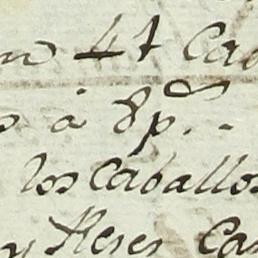 n 4t Cab
s à 8p.s
los Caballos
y Reses Ca